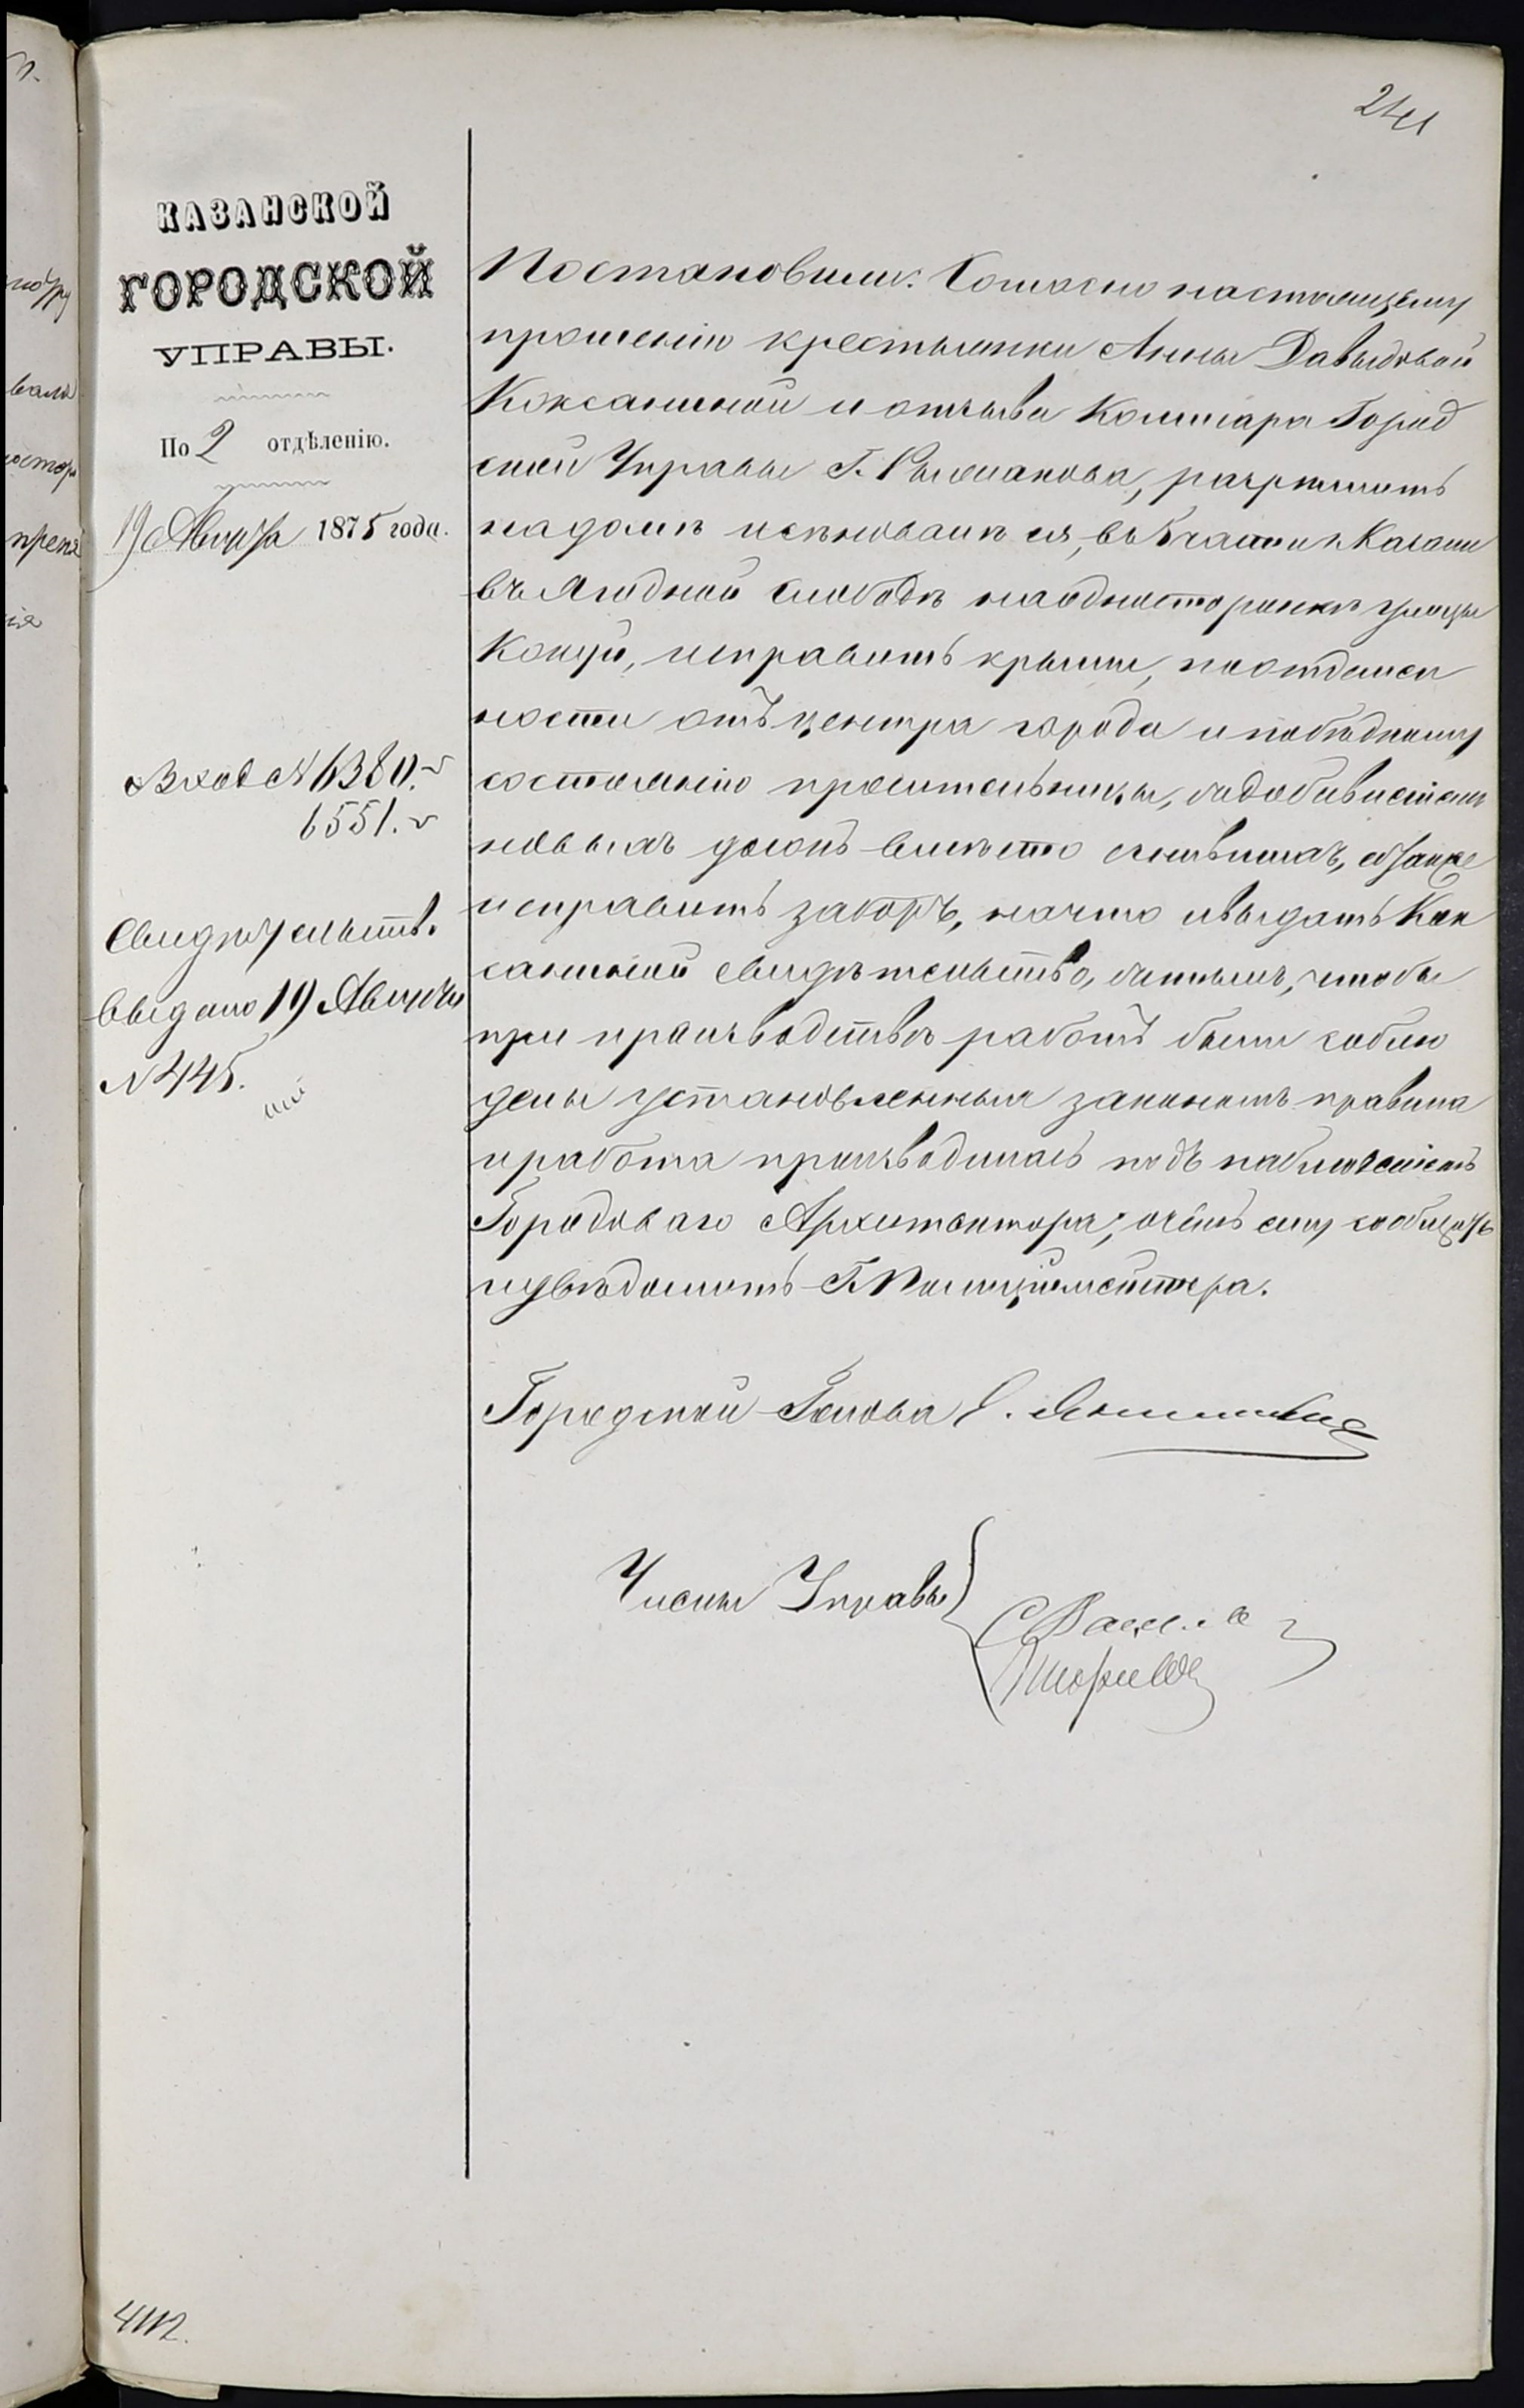 241
КАЗАНСКОЙ
ГОРОДСКОЙ
УПРАВЫ.
По 2 отдѣленію.
19 Августа 1875 года.
Вход № 6380.
6551.
Свидѣтельств.
выдано 19 Августа
№ 445.
Постановили: Согласно настоящему
прошенію крестьянки Анны Давыдовой
Коксаниной и отзыва Комиссара Город
ской Управы Г. разрѣшить
на домѣ и ея, въ части г. Казани
въ Ягодной слободѣ на одной сторонѣ улицы
исправить крыши, по отдален
ности отъ центра города и по бѣдному
состоянію просительницы, съ добавленіемъ
новыхъ досокъ вмѣсто сгнившихъ, а также
исправить заборъ, на что и выдать Кок
саниной свидѣтельство, съ тѣмъ, чтобы
при производствѣ работъ были соблю
дены установленныя закономъ правила
и работа производилась подъ наблюденіемъ
Городоваго Архитектора; о чемъ ему сообщить
и увѣдомить Г. Полиціймейстера.
Городской Голова
Члены Управы